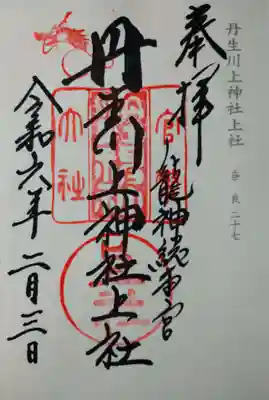 丹生川上神社上社
奈良二十七
奉拝
龍神総本宮
丹生川上神社上社
令和六年二月三日
官
大社